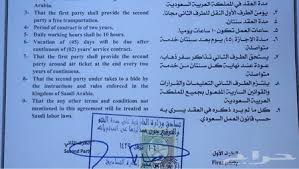 Arabia.
3- That the first party shall provide the second
party a free transportation.
4- Period of contract of two years.
5- Daily working hours shall be 10 hours.
6- Vacation of (45) days will be due after
continuous of (02) years service contract.
7- That the first party shall provide the second
party around air ticket at the end every two
years of continuous.
8- That the second party under takes to a bide by
the instructions and rules enforced in the
kingdom of Saudi Arabia.
9- That the any other terms and conditions not
mentioned in this agreement will be treated as
Saudi labor laws.
Second Party
مدة العقد في المملكة العربية السعودية
٣. يوفر الطرف الأول النقل للطرف الثاني مجانا
٤. مدة العقد سنتان
٥. ساعات العمل تكون ١٠ ساعات يوميا.
٦. مدة الإجازة (٤٥) يوم بعد سنتان خدمة
متواصلة
٧. يستحق الطرف الثاني تذكرة سفر ذهاب
عودة عند نهاية كل سنتان من خدمة
متواصلة.
٨. يتعهد الطرف الثاني التعليمات والقرارات
والقوانين السارية المفعول بجميع المملكة
العربية السعودية
٩. كل ما لم يرد ذكره في العقد يسري به
حسب قانون العمل السعودي.
الطرف الأول
First party